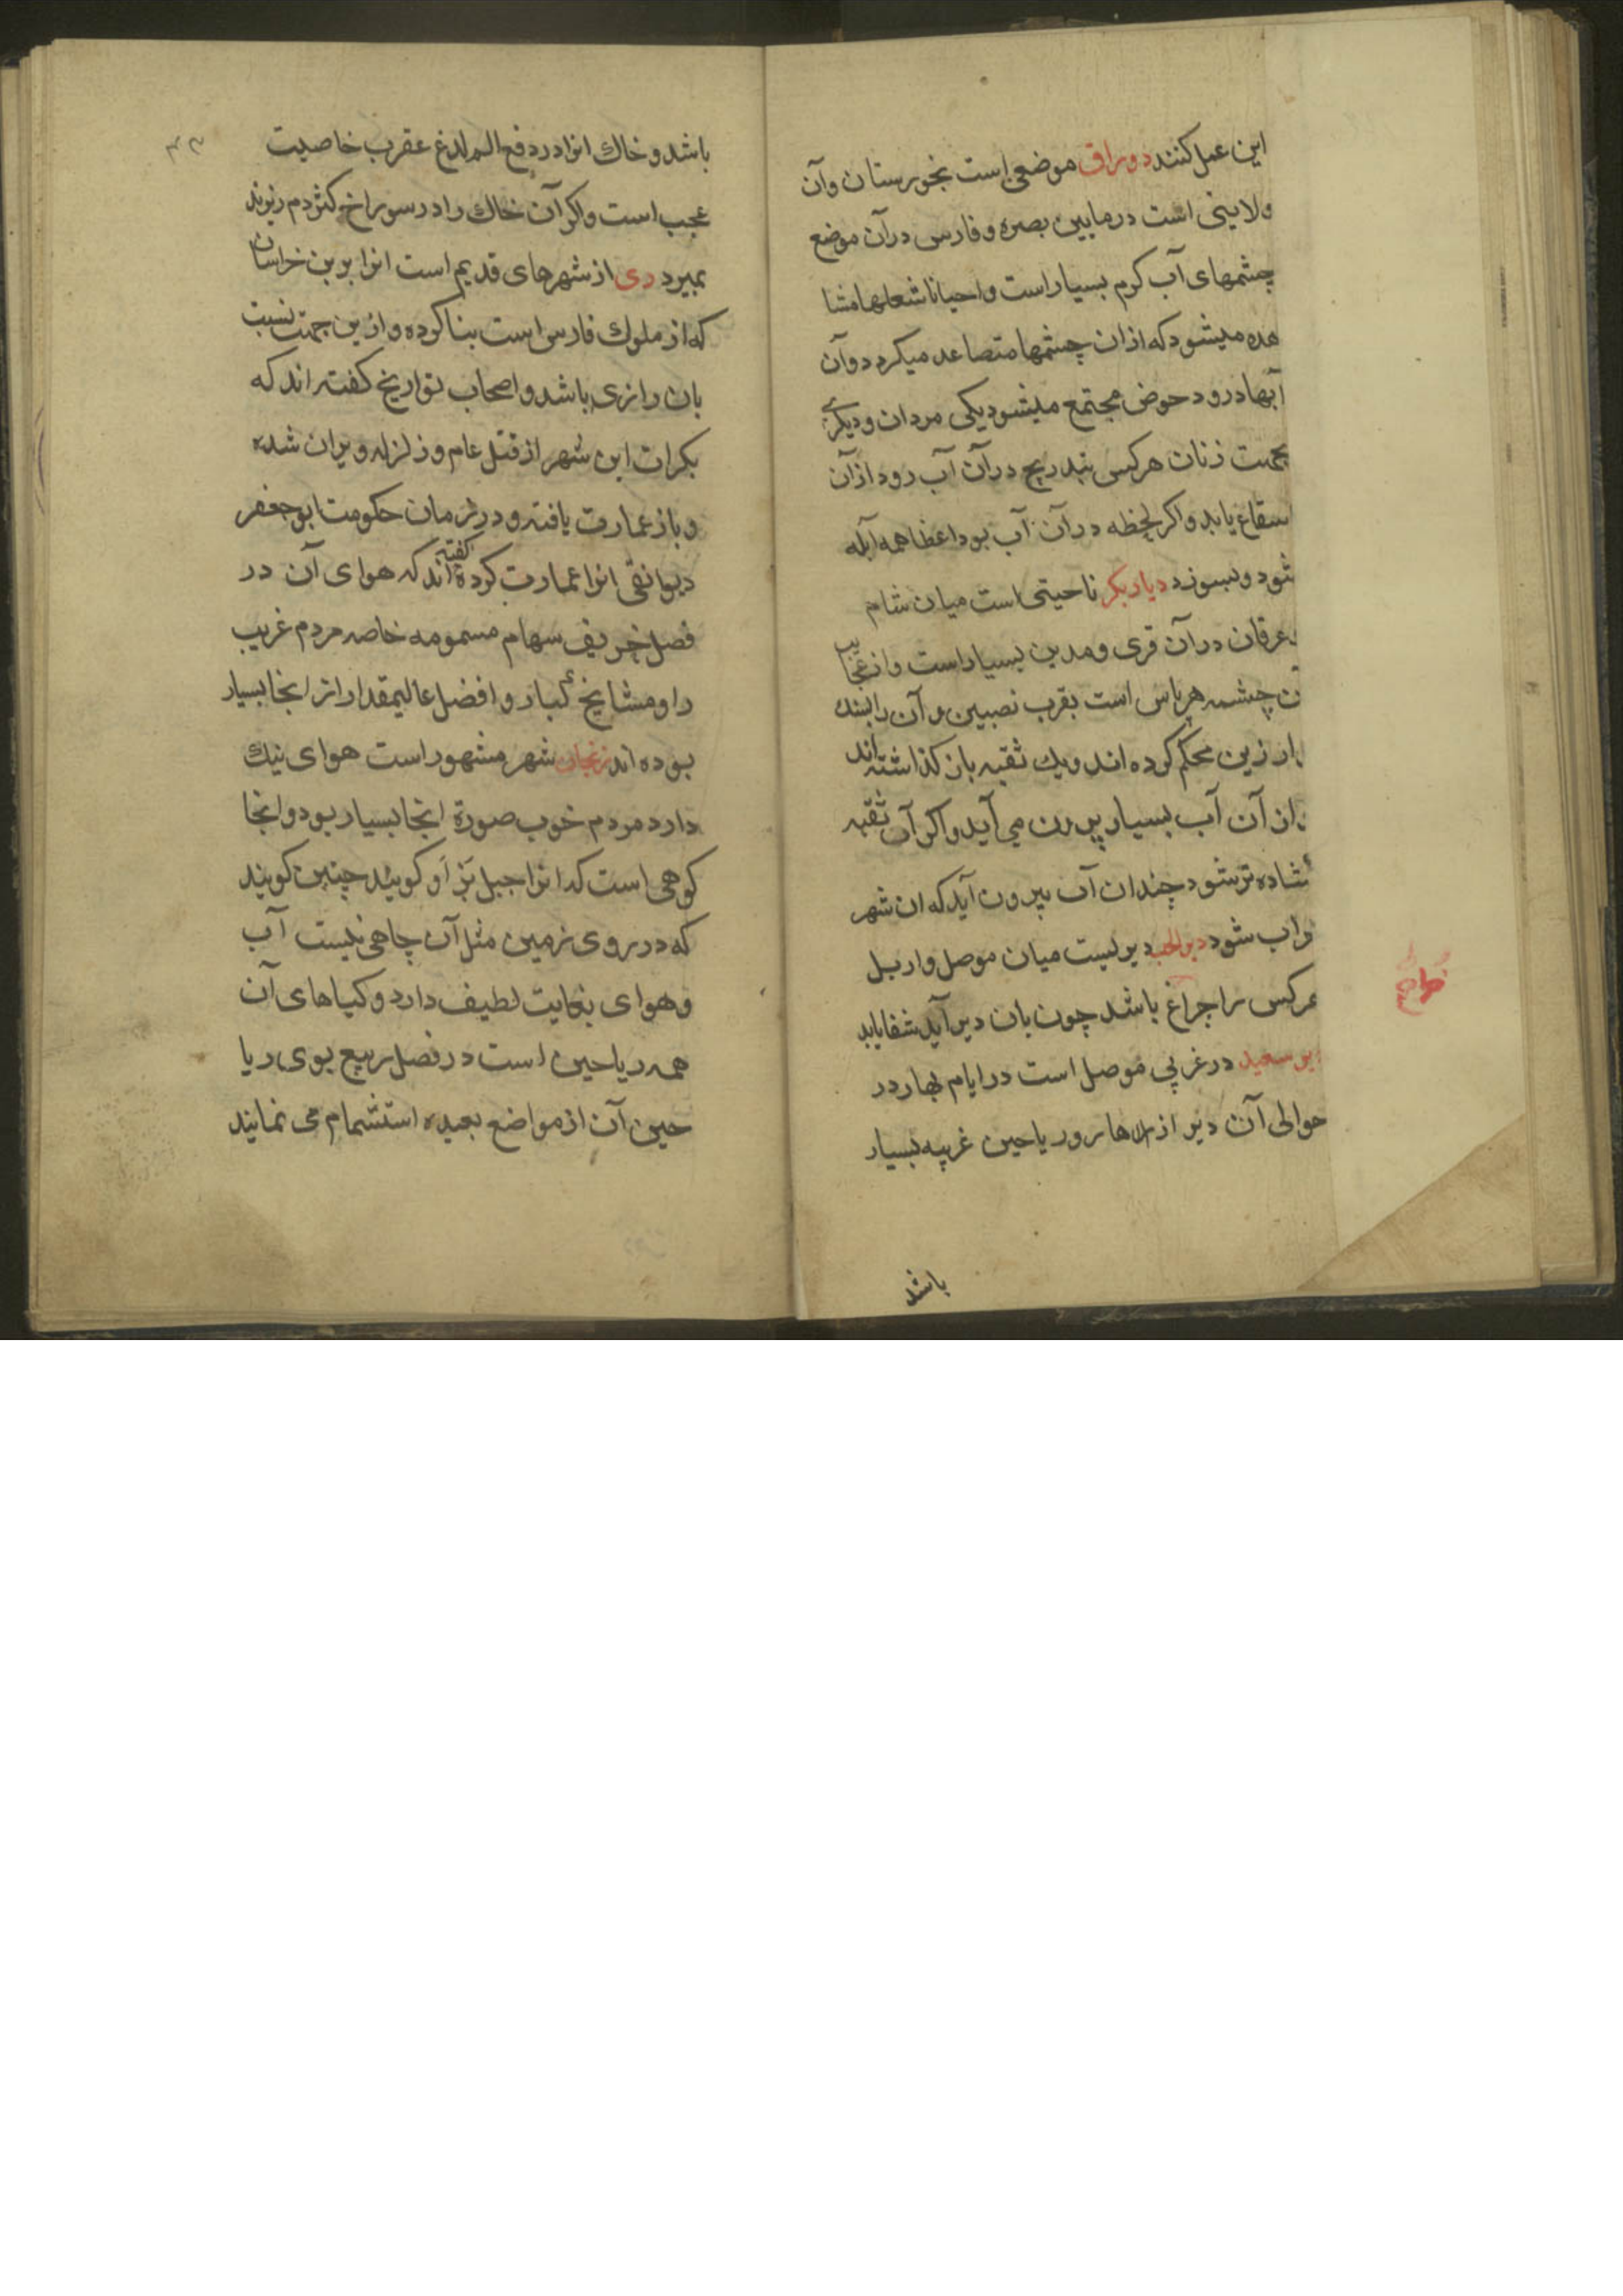 این عمل کنند دوراق موضعی است بخورستان وآن
ولایتی است درمابین بصره وفارس درآن موضع
چشمهای آب کرم بسیاراست واحیانا شعلها مشا
هده میشود که ازان چشمها متصاعد میکردد وآن
آبها درود حوض مجتمع میشود یکی مردان ودیکری
بجهت زنان هرکس بتدریج درآن آب رود ازآن
یابد واکر لحظه درآن آب بود اعظا همه آبله
شود وبسوزد دیاربکر ناحیتی است میان شام
درآن قری ومدین بسیاراست وازعجایب
چشمه هرماس است بقرب نصیبین وآن رابسنك
ارزین محکم کرده اند ویك ثقبه بان کذاشته اند
ازان آب بسیار بیرون می آید واکرآن ثقبه
شاده ترشود چندان آب بیرون آید که ان شهر
راب شود دیرالحب دیریست میان موصل واربل
هرکس را چراغ باشد چون بان دیرآید شفایابد
دیرسعید درغربی موصل است درایام بهاردر
حوالی آن دیر ازازهار وریاحین غریبه بسیار
باشد
باشد وخاك انرا دردفع الم لدغ عقرب خاصیت
عجب است واکرآن خاك را درسوراخ کژدم ریزند
بمیرد ری ازشهرهای قدیم است انرا بربن خراسان
که از ملوك فارس است بنا کرده وازین جهت نسبت
بان رازی باشد واصحاب تواریخ کفته اند که
بکرات این شهر ازقتل عام وزلزله ویران شده
وباز عمارت یافته ودرزمان حکومت ابوجعفر
دیوانقی انرا عمارت کرده کفته اند که هوای آن در
فصل خریف سهام مسمومه خاصه مردم غریب
را ومشایخ کبار وافضل عالیمقدار از انجا بسیار
بوده اند زنجان شهر مشهوراست هوای نیك
دارد مردم خوب صورة انجا بسیار بود وانجا
کوهی است که انرا جبل بزاو کویند چنین کویند
که درروی زمین مثل آن چاهی نیست آب
وهوای بغایت لطیف دارد وکیاهای آن
همه ریاحین است درفصل ربیع بوی ریا
حین آن ازمواضع بعیده استشمام می نمایند